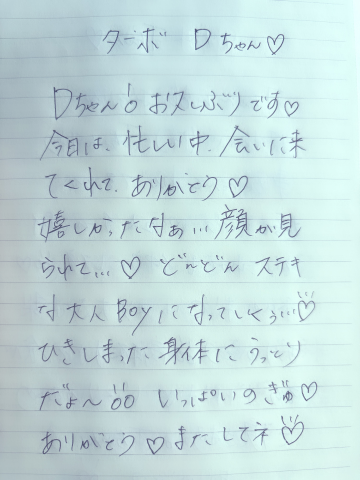 ターボ Dちゃん♡
Dちゃん!! お久しぶりです♡
今日は、忙しい中、会いに来
てくれて、ありがとう♡
嬉しかったなぁ… 顔が見
られて…♡ どんどん ステキ
な大人Boyになっていくぅ…♡
ひきしまった身体にうっとり
だよ〜!! いっぱいのぎゅ♡
ありがとう♡またしてネ♡